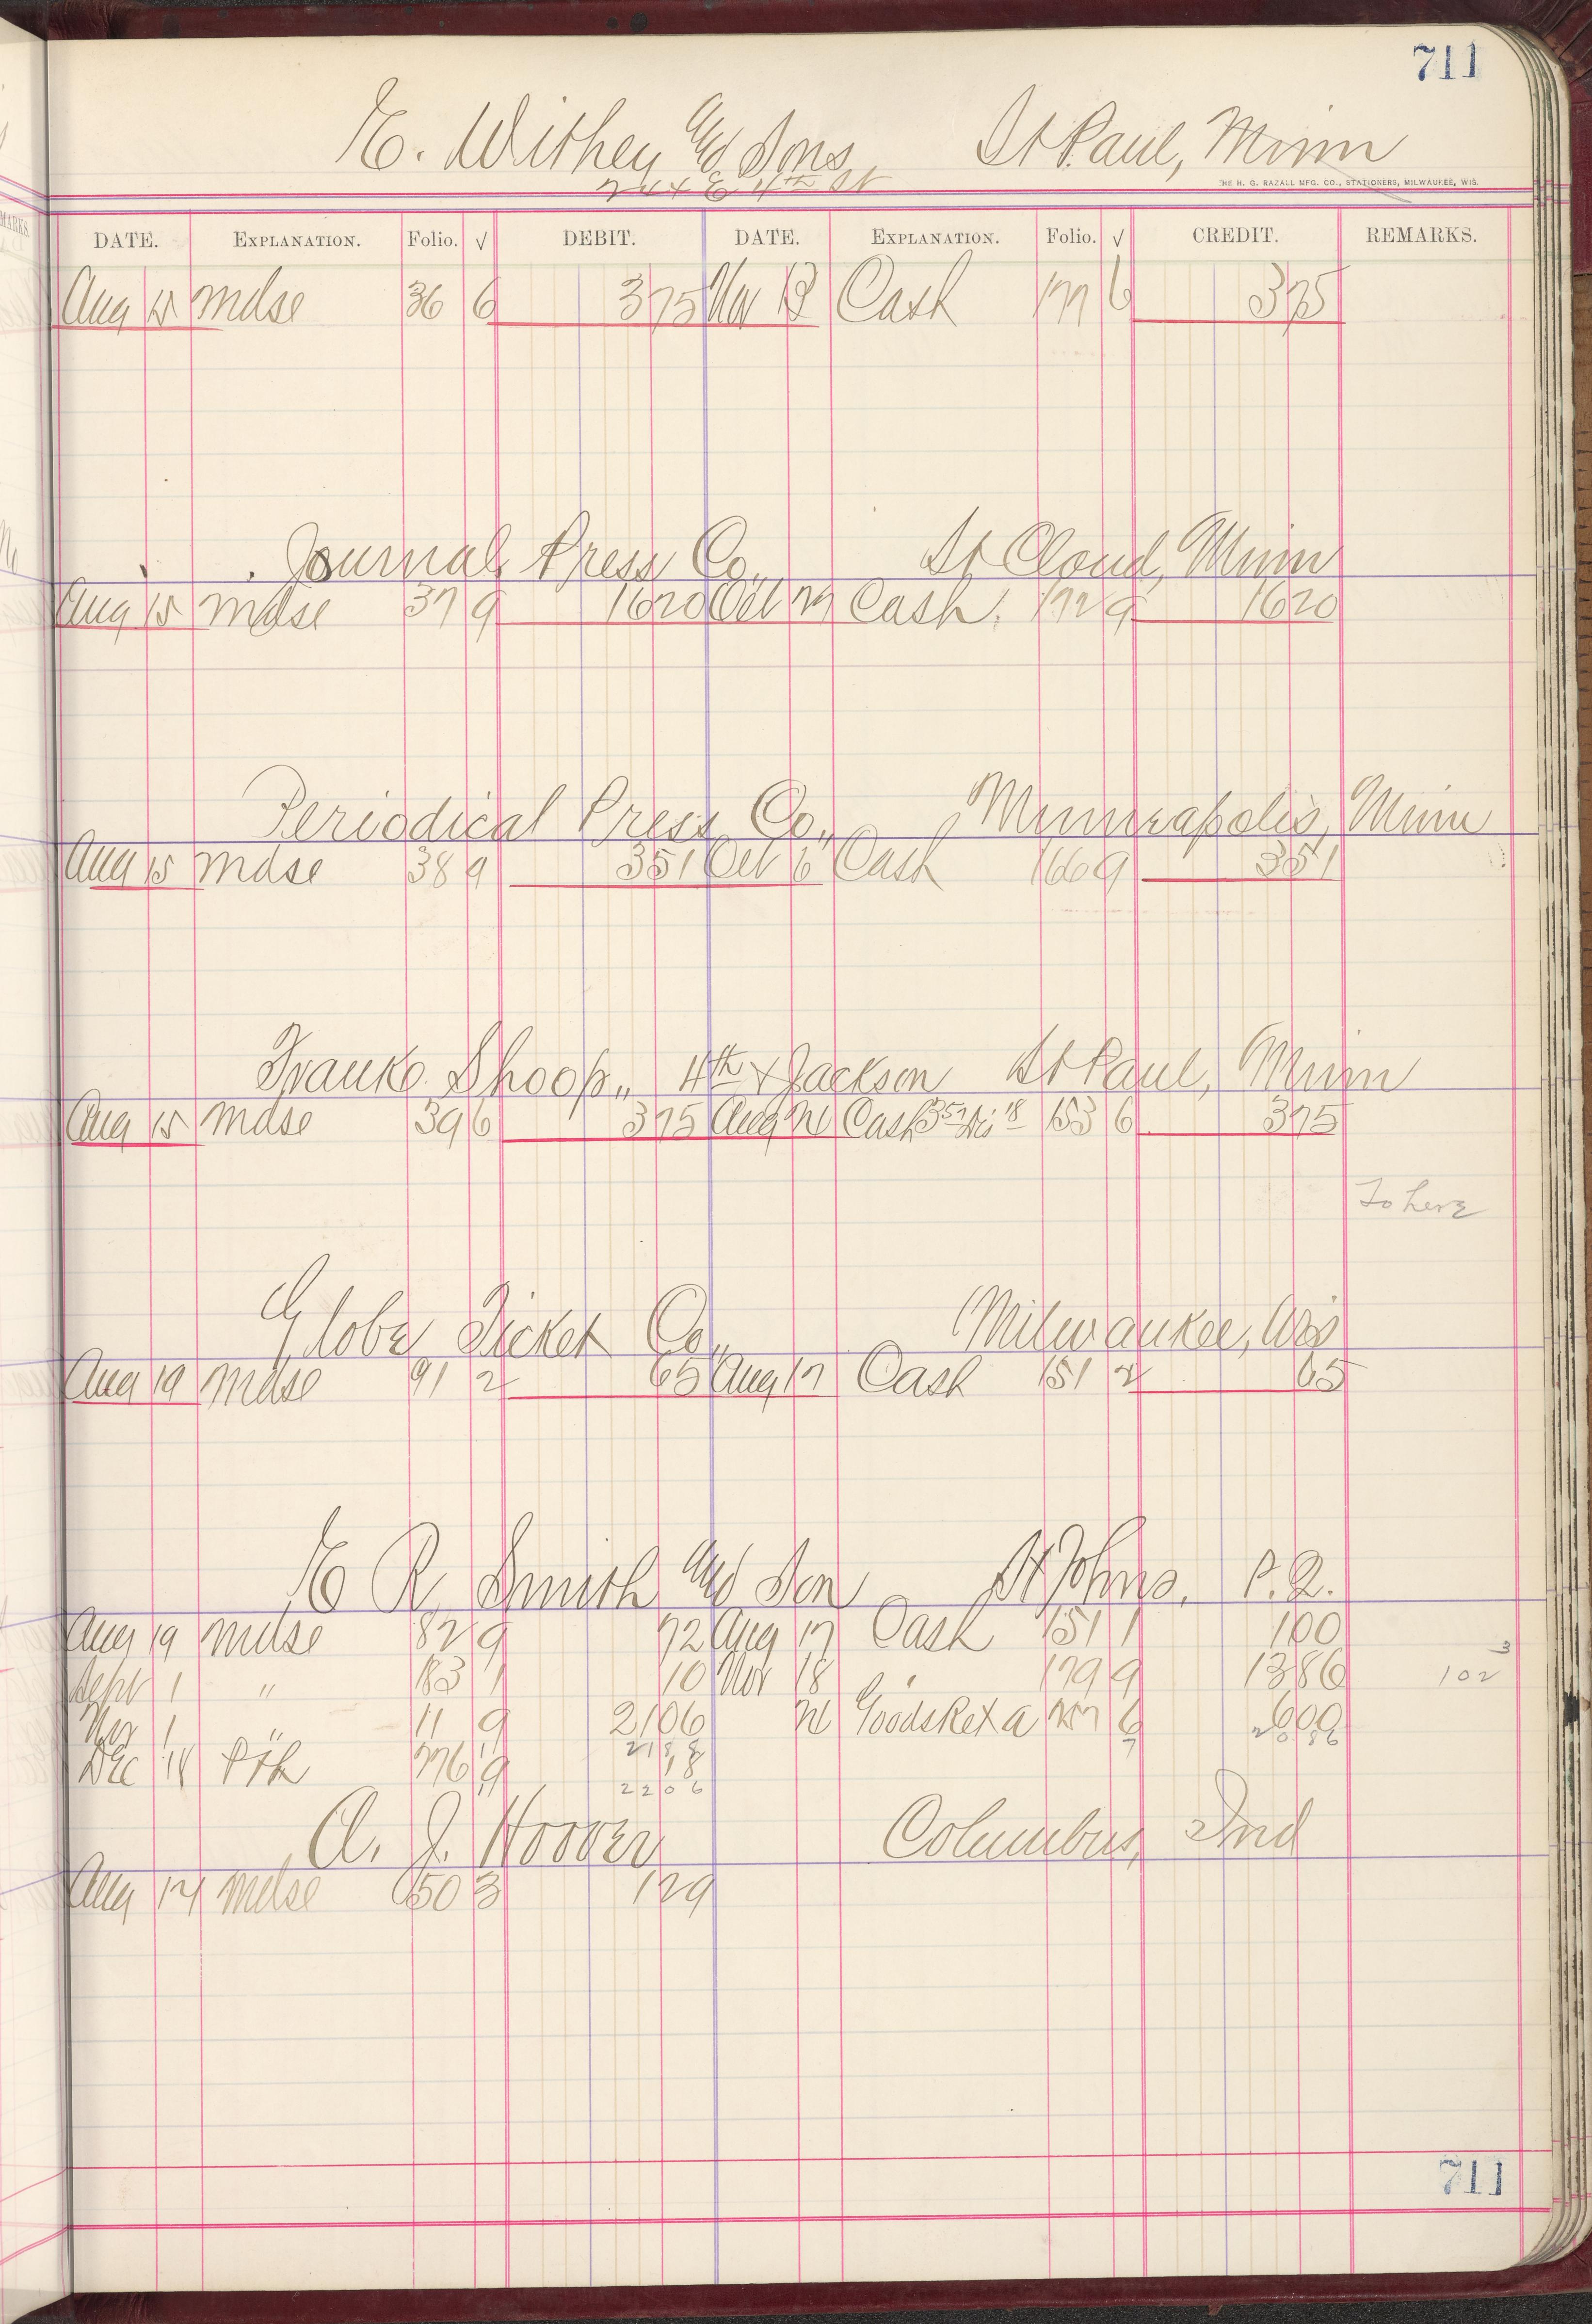 711
E. Withey and Sons St Paul, Minn
E 4th St
THE H. G. RAZALL MFG. CO., STATIONERS, MILWAUKEE, WIS.
DATE. EXPLANATION. Folio. √ DEBIT. DATE. EXPLANATION. Folio. √ CREDIT. REMARKS.
Aug 15 Mdse 36 6 3 75 Nov 13 Cash 177 6 3 75
Journal Press Co., St Cloud, Minn
Aug 15 Mdse 37 9 16 20 Oct 27 Cash. 172 9 16 20
Periodical Press Co., Minneapolis, Minn
Aug 15 Mdse 38 9 3 51 Oct 6 Cash 166 9 3 51
Frank Shoop,, 4th & Jackson St Paul, Minn
Aug 15 Mdse 39 6 3 75 Aug 21 Cash 3 57 Dis 18 153 6 3 75
To here
Globe Ticket Co., Milwaukee, Wis
Aug 19 Mdse 91 2 65 Aug 17 Cash 151 2 65
E R Smith and Son St Johns, P. Q.
Aug 19 Mdse 82 9 72 Aug 17 Cash 151 1 1 00
Sept 1 " 183 1 10 Nov 18 " 179 9 13 86 102 3
Nov 1 " 11 9 21 06 21 Goods Ret a 6 6 00
21 88 20 86
Dec 18 P&h 276 9 18
22 06
A. J. Hoover Columbus, Ind
Aug 14 Mdse 650 3 1 29
711